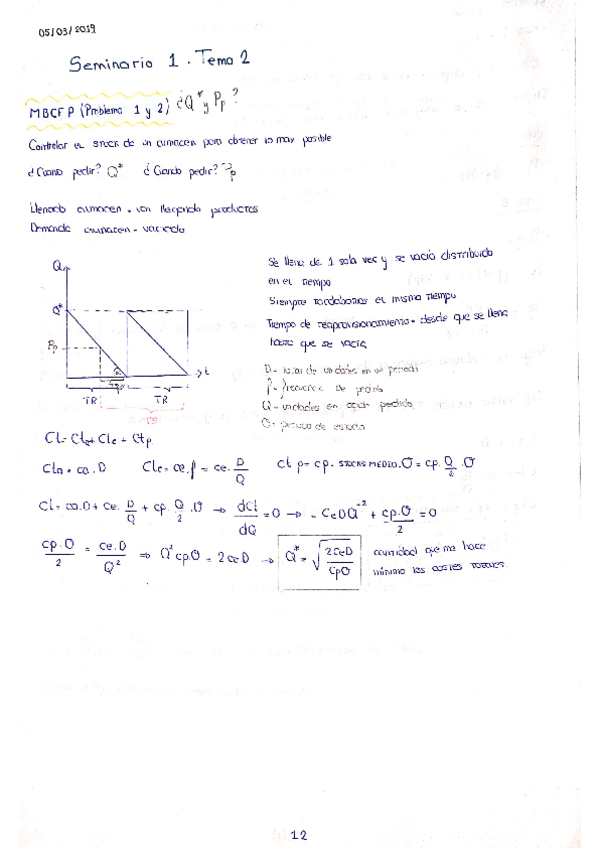 05/03/2019
Seminario 1. Tema 2
MBCFP (Problema 1 y 2) ¿Q* y Pp?
Controlar el stock de un almacen para obtener lo max posible
¿Cuanto pedir? Q* ¿Cuando pedir? Pp
Llenado almacen - van llegando productos
Demanda almacen - vaciado
Se llena de 1 sola vez y se vacía distribuido
en el tiempo
Siempre tardabamos el mismo tiempo
Tiempo de reaprovisionamiento - desde que se llena
hasta que se vacía
Q
Q*
Pp
t
TR TR
D - total de unidades en un periodo
f - frecuencia de pedido
Q - unidades en cada pedido
θ - periodo de estudio
Ct = Cta + Cte + Ctp
Cta = ca.D Cte = ce.f = ce. D/Q Ct p = cp. stocks medio.θ = cp. Q/2 .θ
Ct = ca.D + ce. D/Q + cp. Q/2 .θ → dCt/dQ = 0 → - CeDQ⁻² + cp.θ/2 = 0
cp.θ/2 = ce.D/Q² ⇒ Q² cp.θ = 2ceD → Q* = √(2CeD/Cpθ) cantidad que me hace
mínimo los costes totales
12